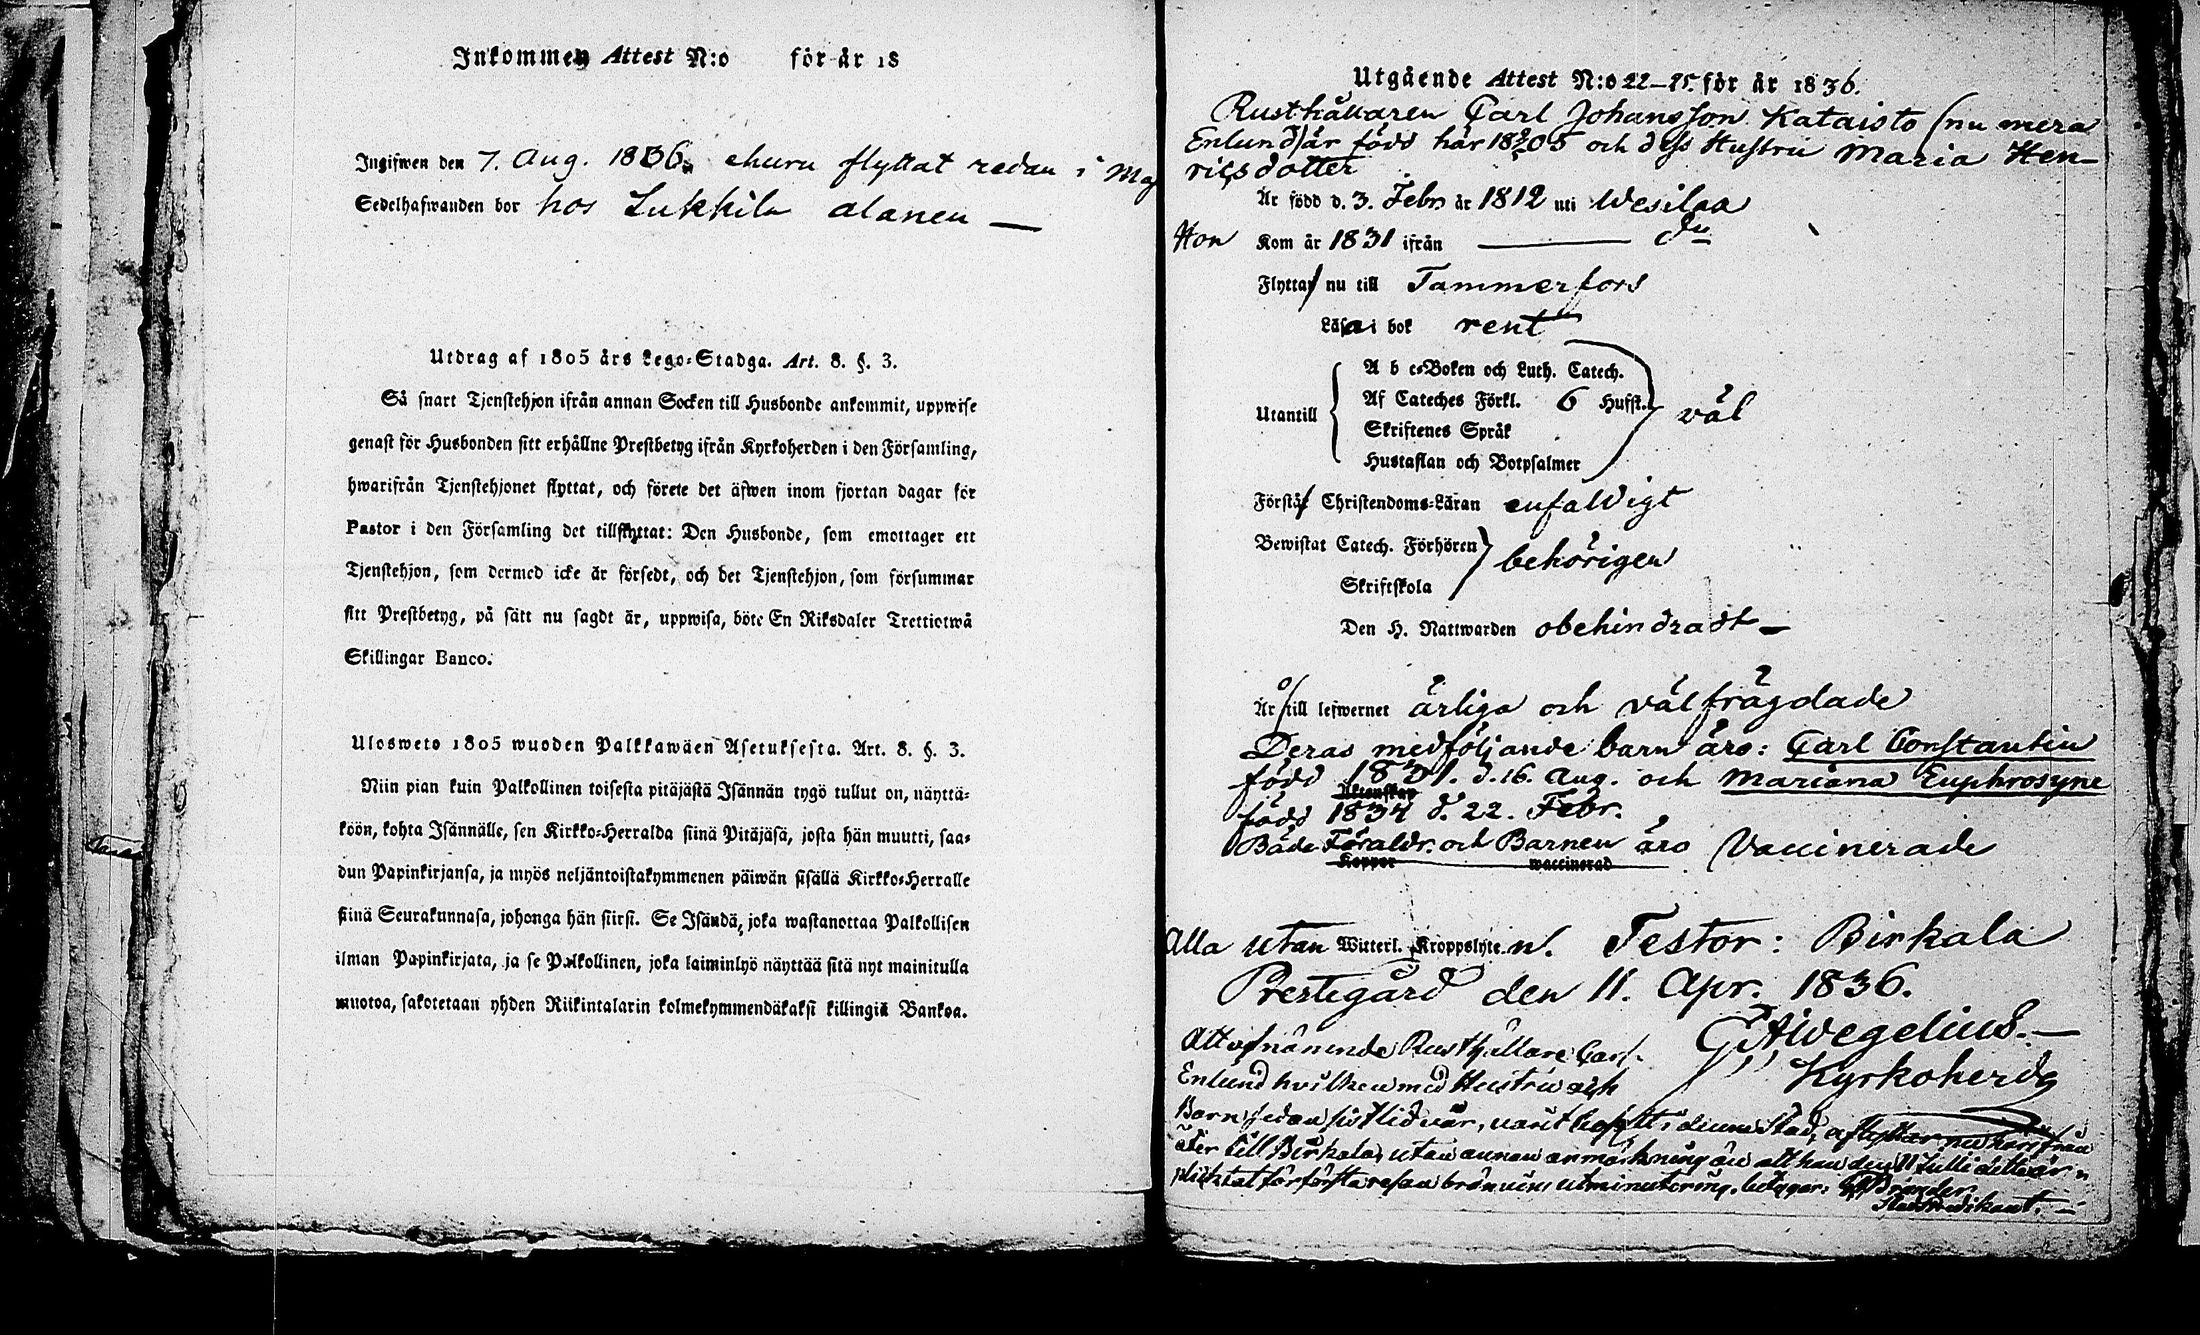 Inkommen Attest N:o för år 18
Ingifwen den 7. Aug. 1836. ehuru flyttat redan i Maj
Sedelhafwanden bor hos Lukkila alanen —
Utdrag af 1805 års Lego-Stadga. Art. 8. §. 3.
Så snart Tjenstehjon ifrån annan Socken till Husbonde ankommit, uppwise
genast för Husbonden sitt erhållne Prestbetyg ifrån Kyrkoherden i den Församling,
hwarifrån Tjenstehjonet flyttat, och förete det äfwen inom fjortan dagar för
Pastor i den Församling det tillflyttat: Den Husbonde, som emottager ett
Tjenstehjon, som dermed icke är försedt, och det Tjenstehjon, som försummar
sitt Prestbetyg, på sätt nu sagdt är, uppwisa, böte En Riksdaler Trettiotwå
Skillingar Banco.
Ulosweto 1805 wuoden Palkkawäen Asetuksesta. Art. 8. §. 3.
Niin pian kuin Palkollinen toisesta pitäjästä Isännän tygö tullut on, näyttä-
köön, kohta Isännälle, sen Kirkko-Herralda siinä Pitäjäsä, josta hän muutti, saa-
dun Papinkirjansa, ja myös neljäntoistakymmenen päiwän sisällä Kirkko-Herralle
siinä Seurakunnasa, johonga hän siirsi. Se Isändä, joka wastanottaa Palkollisen
ilman Papinkirjata, ja se Palkollinen, joka laiminlyö näyttää sitä nyt mainitulla
muotoa, sakotetaan yhden Riikintalarin kolmekymmendäkaksi killingiä Bankoa.
Utgående Attest N:o 22–25. för år 1836.
Rusthållaren Carl Johansson Kataisto (nu mera
Enlund) är född här 1805 och dess Hustru Maria Hen-
ricsdotter
Är född d. 3. Febr. år 1812 uti Wesilax
Hon Kom år 1831 ifrån — Do
Flyttar nu till Tammerfors
Läsa i bok rent
A b c-Boken och Luth. Catech.
Af Cateches Förkl. 6 Hufst.
Utantill väl
Skriftenes Språk
Hustaflan och Botpsalmer
Förstår Christendoms-Läran enfaldigt
Bewistat Catech. Förhören behörigen
Skriftskola
Den H. Nattwarden obehindradt —
Är till lefwernet ärliga och välfrägdade
Deras medföljande barn äro: Carl Constantin
född 1831. d. 16. Aug. och Mariana Euphrosyne
Äktenskap
född 1834 d. 22. Febr.
Både Föräldr. och Barnen äro Vaccinerade
Koppor waccinerad
Alla utan Witterl. Kroppslyten. Testor: Birkala
Prestegård den 11. Apr. 1836.
G. Aivegelius. —
Kyrkoherde
Att ofnämnde Rusthållare Carl
Enlund hvilken med Hustru och
Barn sedan sistlidne vår, varit bosatt i denna Stad, afflyttar nu härifrån
åter till Birkala, utan annan anmärkning än att han den 11 Julii detta år
pliktat för första resan bränvins utminutering, betygar: Brander
Stadspredikant. —